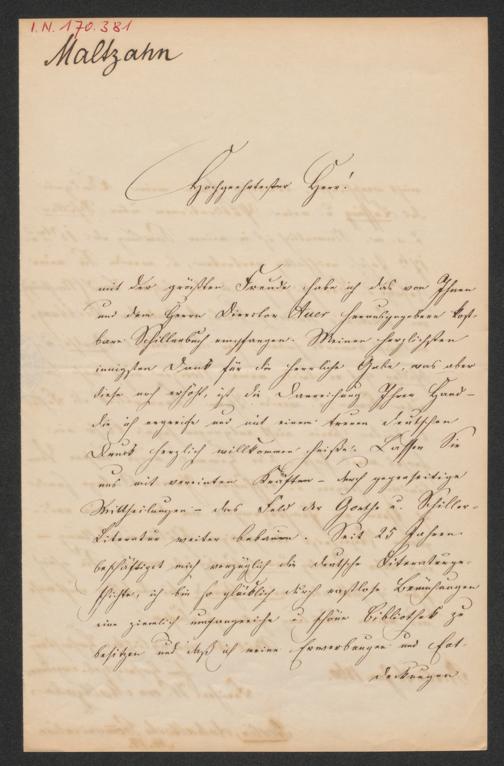 I.N. 170.381
Maltzahn
Hochgeehrtester Herr!
mit der größten Freude habe ich das von Ihnen
und dem Herrn Director Auer herausgegebene kost-
bare Schillerbuch empfangen. Meinen herzlichsten
innigsten Dank für die herrliche Gabe, was aber
diese noch erhöht, ist die Darreichung Ihrer Hand –
die ich ergreife und mit einem treuen deutschen
Druck herzlich willkommen heiße. Lassen Sie
uns mit vereinten Kräften – durch gegenseitige
Mittheilungen – das Feld der Goethe u. Schiller-
Literatur weiter bebauen. Seit 25 Jahren
beschäftigt mich vorzüglich die deutsche Literaturge-
schichte, ich bin so glücklich durch rastlose Bemühungen
eine ziemlich umfangreiche u. schöne Bibliothek zu
besitzen und daß ich meine Erwerbungen und Ent-
deckungen